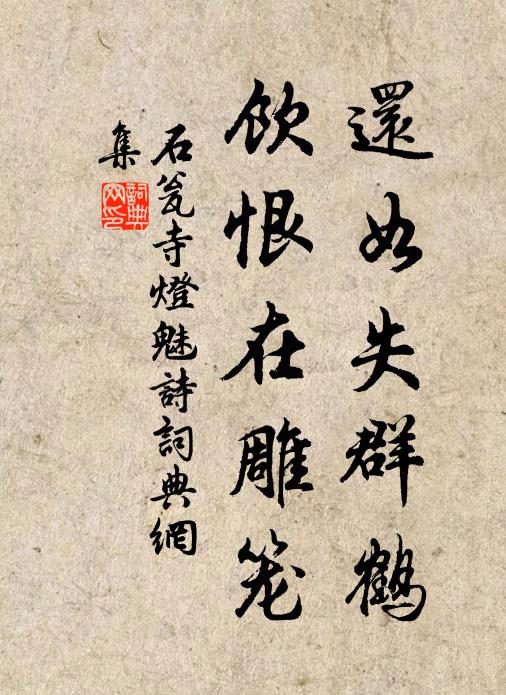 還如失群鶴
飲恨在雕笼
石瓮寺燈魅詩詞典網
集
詞典
网印